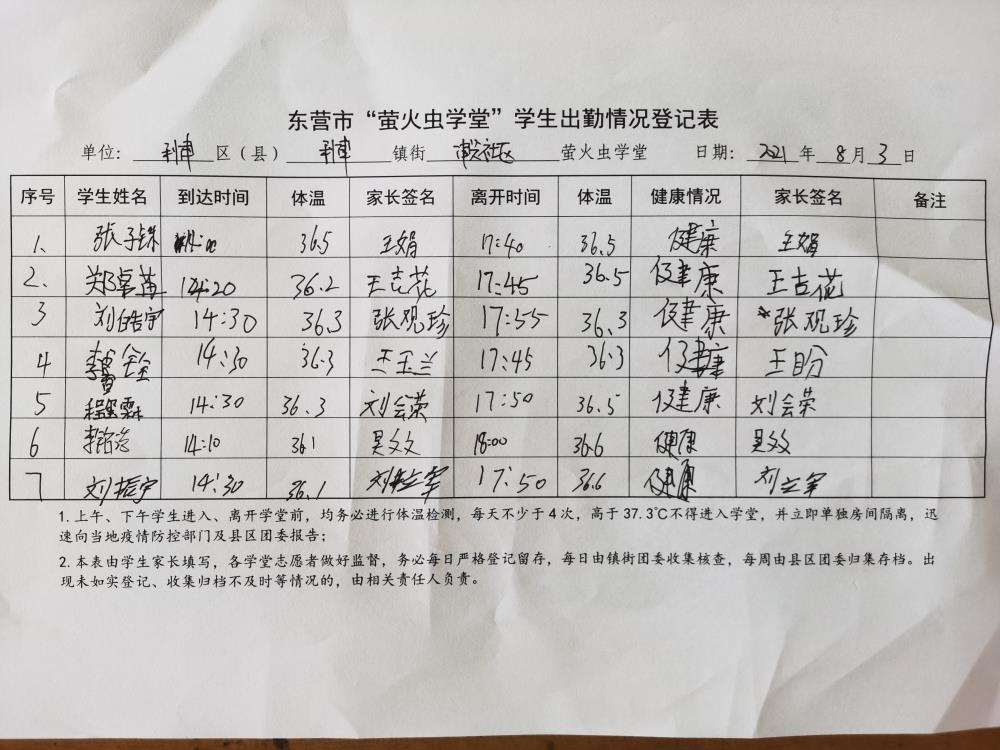 东营市“萤火虫学堂”学生出勤情况登记表
单位：利津区（县）利津镇街社区萤火虫学堂 日期：2021年8月3日
序号 学生姓名 到达时间 体温 家长签名 离开时间 体温 健康情况 家长签名 备注
1、 张子铢 36.5 王娟 17:40 36.5 健康 王娟
2、 14:20 36.2 王吉花 17:45 36.5 健康 王吉花
3 刘皓宇 14:30 36.3 张观珍 17:55 36.3 健康 张观珍
4 14:30 36.3 王玉兰 17:45 36.3 健康 王盼
5 程 霖 14:30 36.3 刘会荣 17:50 36.5 健康 刘会荣
6 14:10 36.1 吴文文 18:00 36.6 健康 吴文文
7 刘振宇 14:30 36.1 刘立军 17:50 36.6 健康 刘立军
1.上午、下午学生进入、离开学堂前，均务必进行体温检测，每天不少于4次，高于37.3℃不得进入学堂，并立即单独房间隔离，迅
速向当地疫情防控部门及县区团委报告；
2.本表由学生家长填写，各学堂志愿者做好监督，务必每日严格登记留存，每日由镇街团委收集核查，每周由县区团委归集存档。出
现未如实登记、收集归档不及时等情况的，由相关责任人负责。